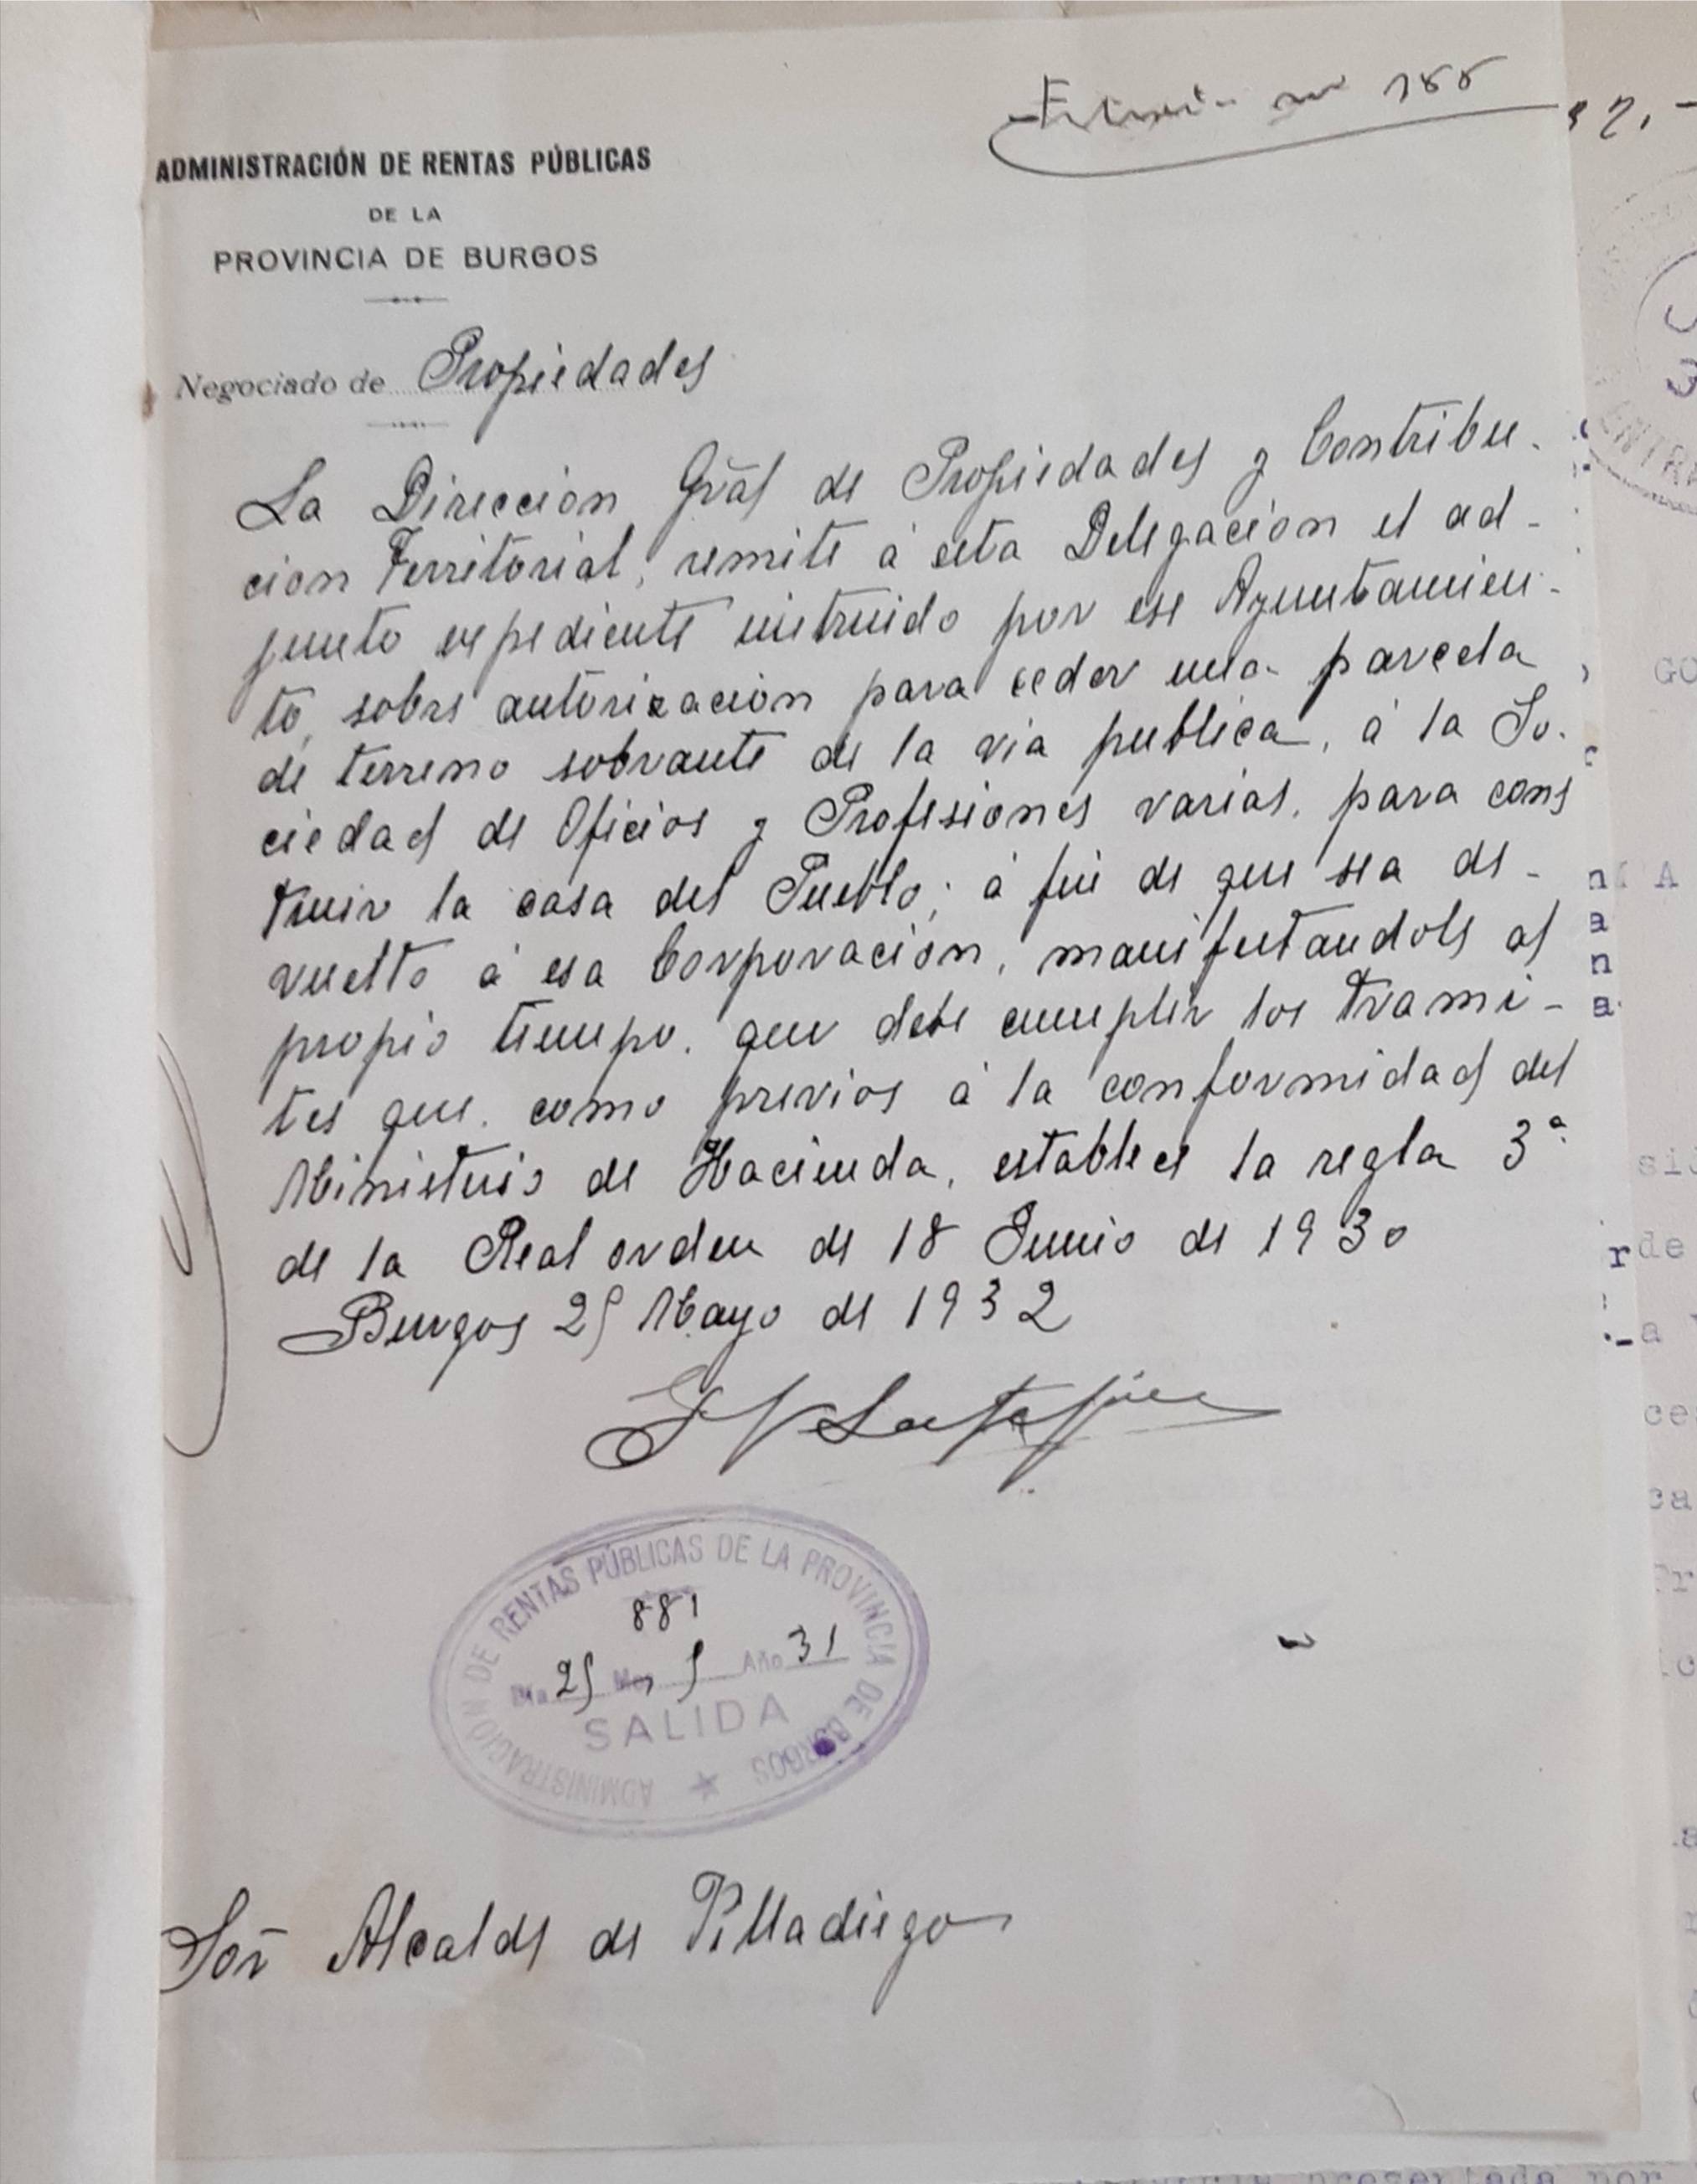 nº 155
ADMINISTRACIÓN DE RENTAS PÚBLICAS
DE LA
PROVINCIA DE BURGOS
Negociado de Propiedades
La Direccion Gral de Propiedades y Contribu-
cion Territorial, remite á esta Delegacion el ad-
junto expediente instruido por ese Ayuntamien-
to, sobre autorizacion para ceder una parcela
de terreno sobrante de la via publica, á la So-
ciedad de Oficios y Profesiones varias, para cons
truir la casa del Pueblo; á fin de que sea de-
vuelto á esa Corporacion, manifestandole al
propio tiempo, que debe cumplir los trami-
tes que, como previos á la conformidad del
Ministerio de Hacienda, establece la regla 3ª
de la Real orden de 18 Junio de 1930
Burgos 25 Mayo de 1932
ADMINISTRACIÓN DE RENTAS PÚBLICAS DE LA PROVINCIA DE BURGOS
881
Día 25 Mes 5 Año 31
SALIDA
Sor Alcalde de Villadiego